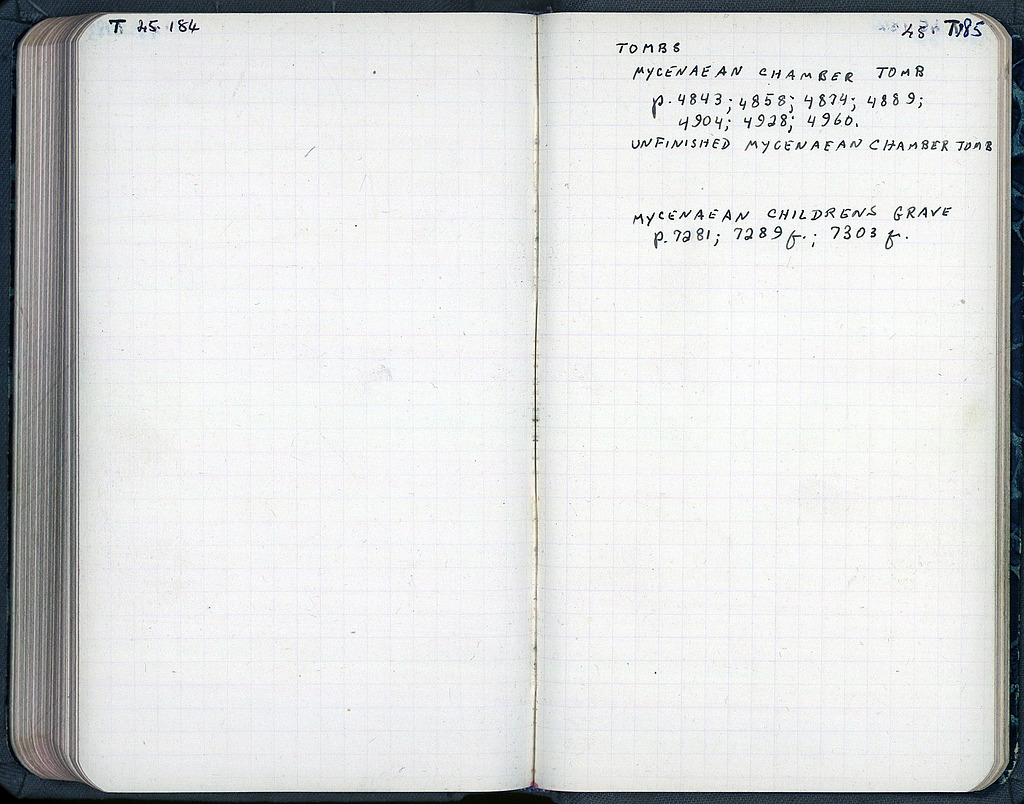 T 45 184
45 T185
TOMBS
MYCENAEAN CHAMBER TOMB
p. 4843; 4858; 4874; 4889;
4904; 4928; 4960.
UNFINISHED MYCENAEAN CHAMBER TOMB
MYCENAEAN CHILDRENS GRAVE
p. 7281; 7289 f.; 7303 f.